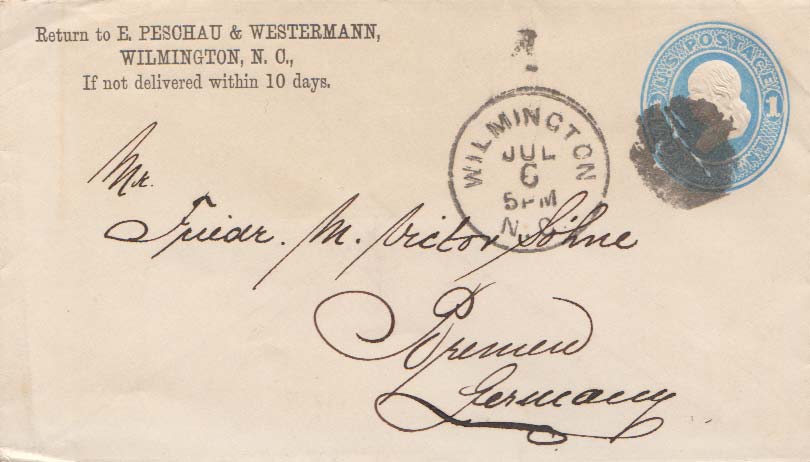 Return to E. PESCHAU & WESTERMANN,
WILMINGTON, N. C.,
If not delivered within 10 days.
U.S. POSTAGE
1
WILMINGTON
JUL
6
5PM
N.C.
Mr.
Friedr. M. Victor Söhne
Bremen
Germany